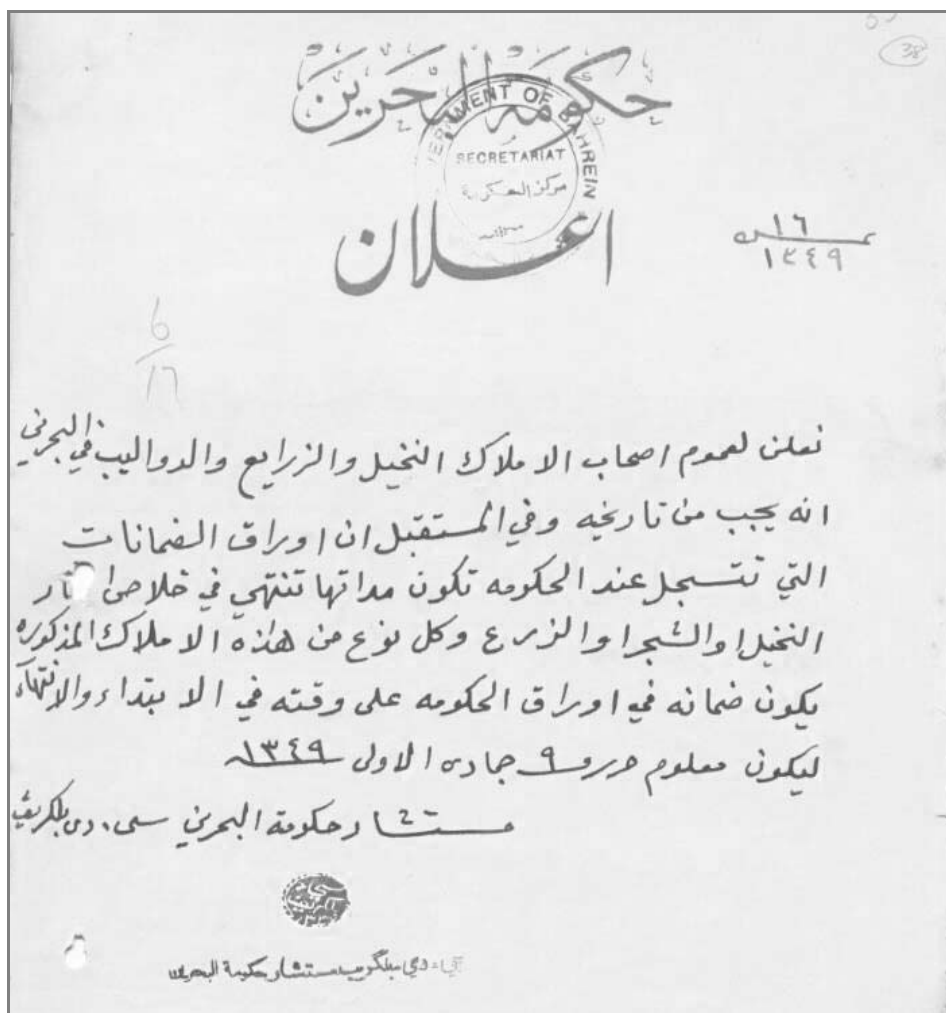 38
حكومة البحرين
GOVERNMENT OF BAHREIN
SECRETARIAT
اعلان
نمرة ١٦
١٣٤٩
6
١٦
نعلن لعموم اصحاب الاملاك النخيل والزرايع والدواليب في البحرين
انه يجب من تاريخه وفي المستقبل ان اوراق الضمانات
التي تتسجل عند الحكومه تكون مداتها تنتهي في خلاص
النخيل او الشجر او الزرع وكل نوع من هاذه الاملاك المذكوره
يكون ضمانه في اوراق الحكومه على وقته في الابتداء والانتهاء
ليكون معلوم حرر في ٩ جماده الاولى ١٣٤٩
مستشار حكومة البحرين سي. دي بلكريف
دي بلگريف مستشار حكومة البحرين